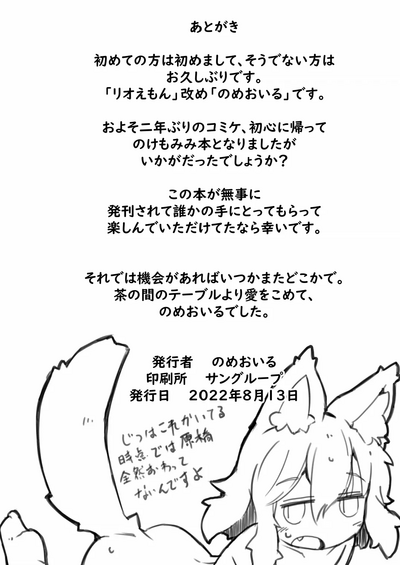 あとがき
初めての方は初めまして、そうでない方は
お久しぶりです。
「リオえもん」改め「のめおいる」です。
およそ二年ぶりのコミケ、初心に帰って
のけもみみ本となりましたが
いかがだったでしょうか？
この本が無事に
発刊されて誰かの手にとってもらって
楽しんでいただけてたなら幸いです。
それでは機会があればいつかまたどこかで。
茶の間のテーブルより愛をこめて、
のめおいるでした。
発行者　のめおいる
印刷所　サングループ
発行日　2022年8月13日
じつはこれかいてる
時点では原稿
全然おわって
ないんですよ